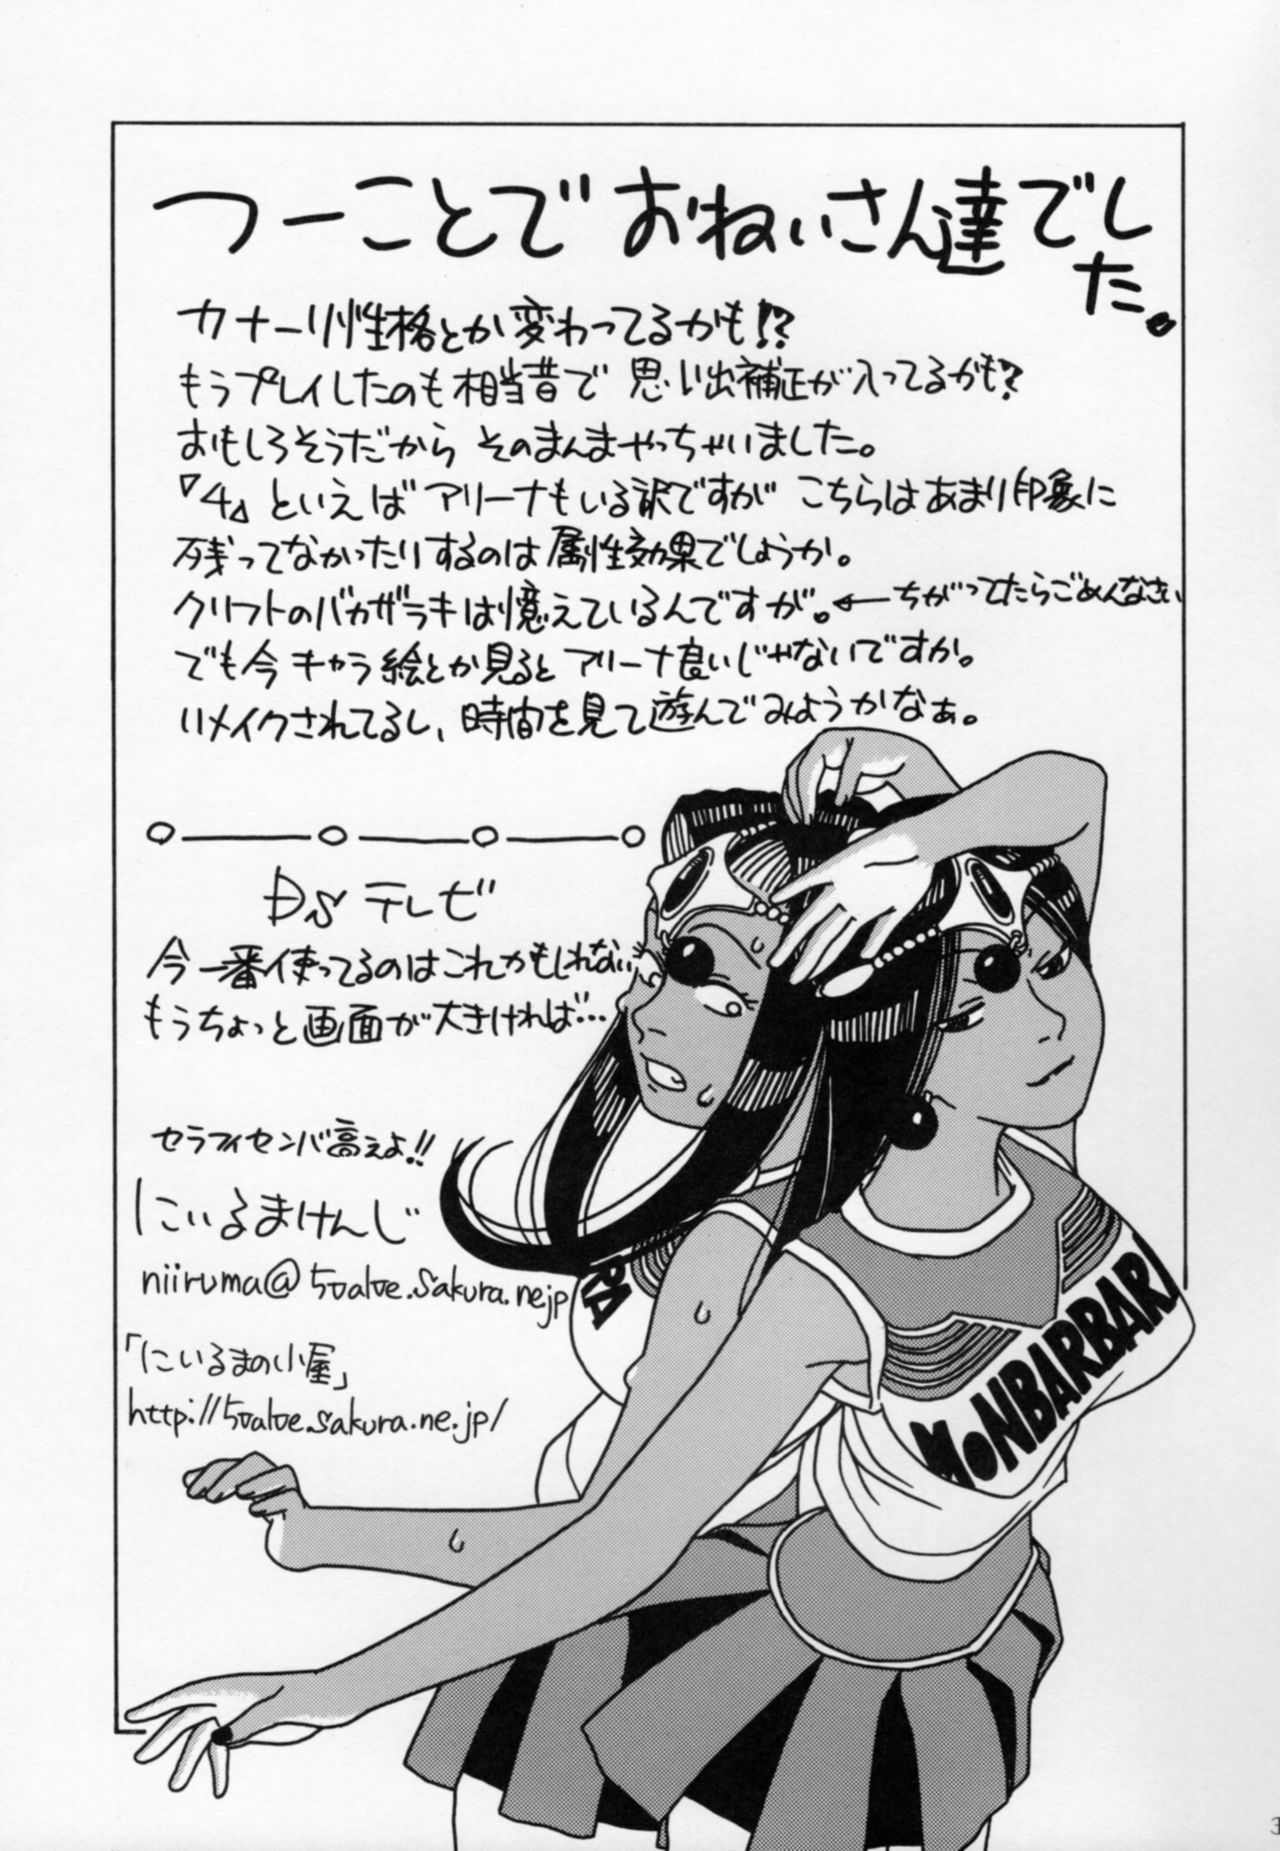 つーことでおねいさん達でした。
カナーリ性格とか変わってるかも!?
もうプレイしたのも相当昔で 思い出補正が入ってるかも?
おもしろそうだから そのまんまやっちゃいました。
『4』といえばアリーナもいる訳ですが こちらはあまり印象に
残ってなかったりするのは属性効果でしょうか。
クリフトのバカザラキは憶えているんですが。←ちがってたらごめんなさい
でも今キャラ絵とか見るとアリーナ良いじゃないですか。
リメイクされてるし、時間を見て遊んでみようかなぁ。
DSテレビ
今一番使ってるのはこれかもしれない
もうちょっと画面が大きければ…
セラフィセンバ高えよ!!
にいるまけんじ
niiruma@5value.sakura.ne.jp
「にいるまの小屋」
http://5value.sakura.ne.jp/
RA
MONBARBARA
3